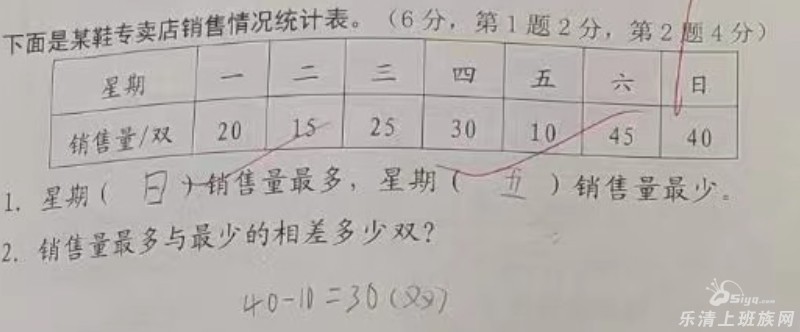 下面是某鞋专卖店销售情况统计表。（6分，第1题2分，第2题4分）
星期 一 二 三 四 五 六 日
销售量/双 20 15 25 30 10 45 40
1. 星期（ 日 ）销售量最多，星期（ 五 ）销售量最少。
2. 销售量最多与最少的相差多少双？
40-10=30(双)
Sigw.com
乐清上班族网